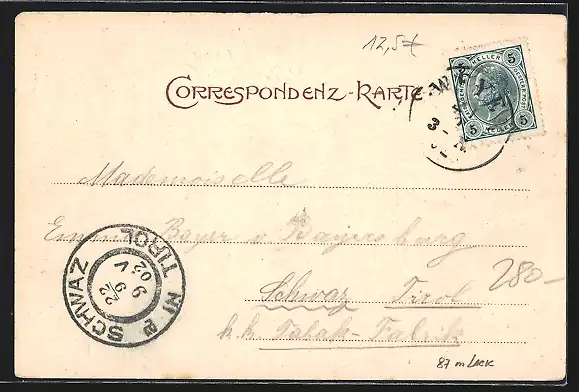 12,5€
CORRESPONDENZ-KARTE
5 HELLER 5
5 HELLER 5
Mademoiselle
Emma Bayer v Bayersburg
Schwaz Tirol
k.k. Tabak-Fabrik
SCHWAZ IN TIROL
9 V 02
280-
87 m LACK